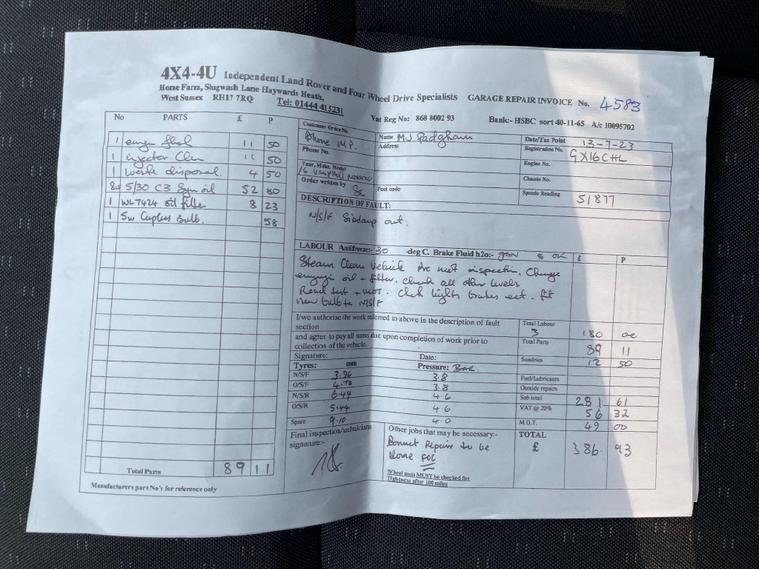 4X4-4U Independent Land Rover and Four Wheel Drive Specialists GARAGE REPAIR INVOICE No. 4583
Horse Farm, Slugwash Lane Haywards Heath,
West Sussex RH17 7RQ Tel: 01444 415231 Vat Reg No: 868 8002 93 Bank:- HSBC sort 40-11-65 A/c 10095702
No PARTS £ P
1 engine flush 11 50
1 injector Clen 11 50
1 waste disposal 4 50
8Lt 5/30 C3 Syn oil 52 80
1 WL7424 oil filter 8 23
1 5w Capless bulb. 58
Total Parts 89 11
Manufacturers part No's for reference only
Customer Order No.
Phone M.P.
Phone No.
Year, Make, Model
16 Vauxhall
Order written by
Name MJ Padgham
Address
Post code
Date/Tax Point 13-7-23
Registration No. GX16CHL
Engine No.
Chassis No.
Speedo Reading 51877
DESCRIPTION OF FAULT:
N/S/F Sidelamp out.
LABOUR Antifreeze:- 30 deg C. Brake Fluid h2o:- & ok £ P
Steam Clean Vehicle Pre mot inspection. Change
engine oil + filter. check all other levels
Road test + mot. Check lights brakes ect. fit
new bulb to N/S/F
I/we authorise the work referred to above in the description of fault
section
and agree to pay all sums due upon completion of work prior to
collection of the vehicle.
Signature: Date:
Total Labour
3 180 00
Total Parts 89 11
Sundries 12 50
Fuel/Lubricants
Outside repairs
Sub total 281 61
VAT @ 20% 56 32
M.O.T. 49 00
TOTAL
£ 386 93
Tyres: mm Pressure: Bar
N/S/F 3.96 3.8
O/S/F 4.78 3.8
N/S/R 6.44 4.6
O/S/R 5.44 4.6
Spare 9.10 4.0
Final inspection/technicians
signature:-
Other jobs that may be necessary:-
Bonnet Repairs to be
done FOC
Wheel nuts MUST be checked for
Tightness after 100 miles